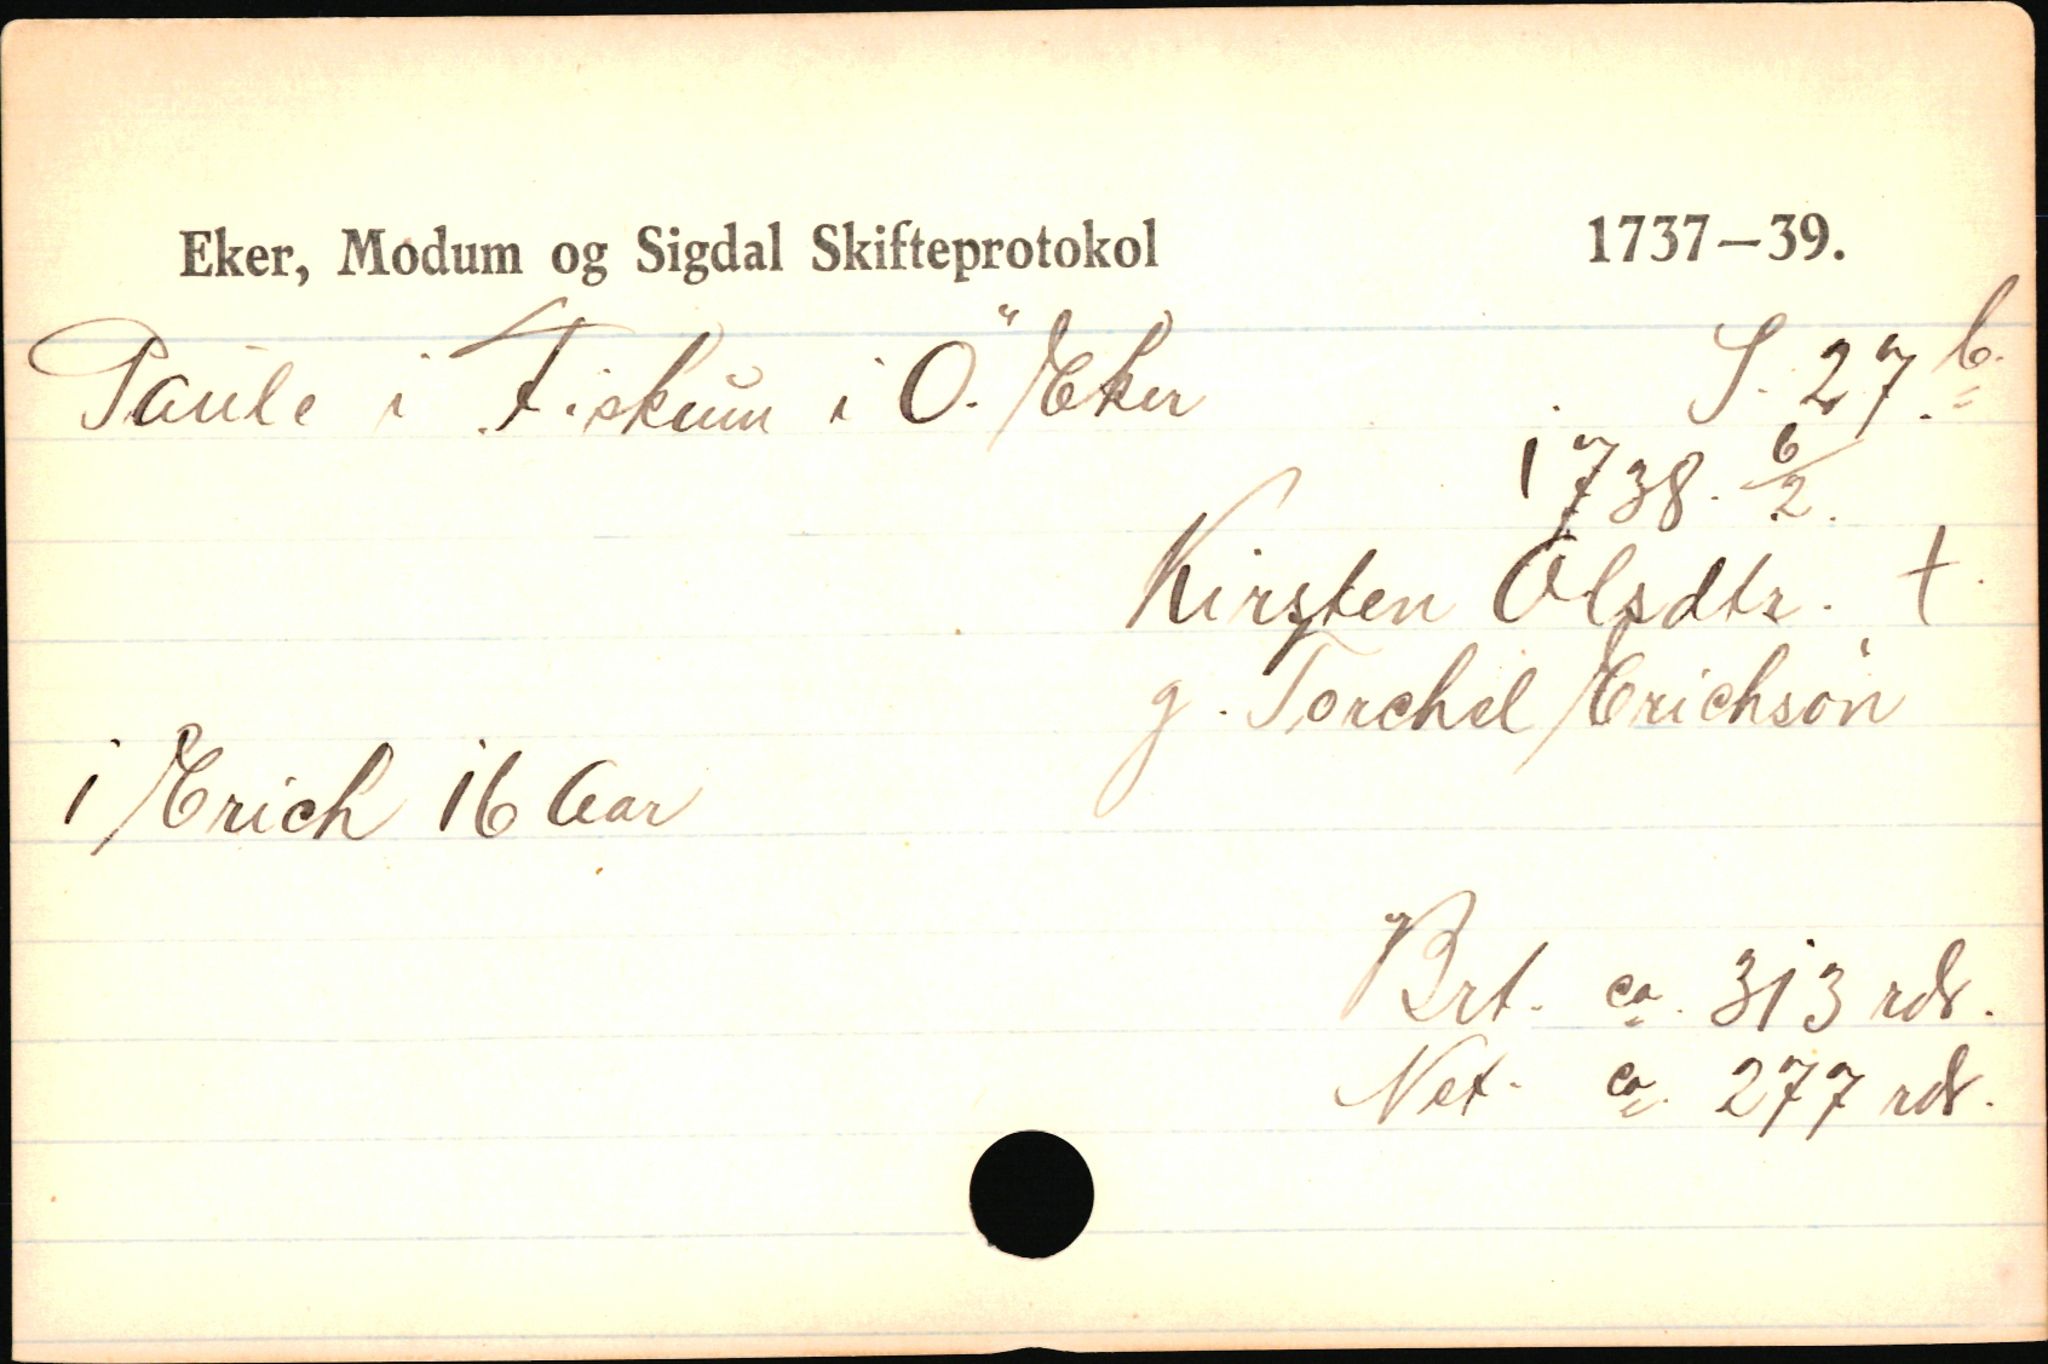 Eker, Modum og Sigdal Skifteprotokol 1737–39.
Paule i Fiskum i Ö. Eker S. 27 b.
1738. 6/2.
Kirsten Olsdtr. †
g. Torchel Erichsön
1 Erich 16 Aar
Brt. ca. 313 rdr.
Net. ca. 277 rdr.